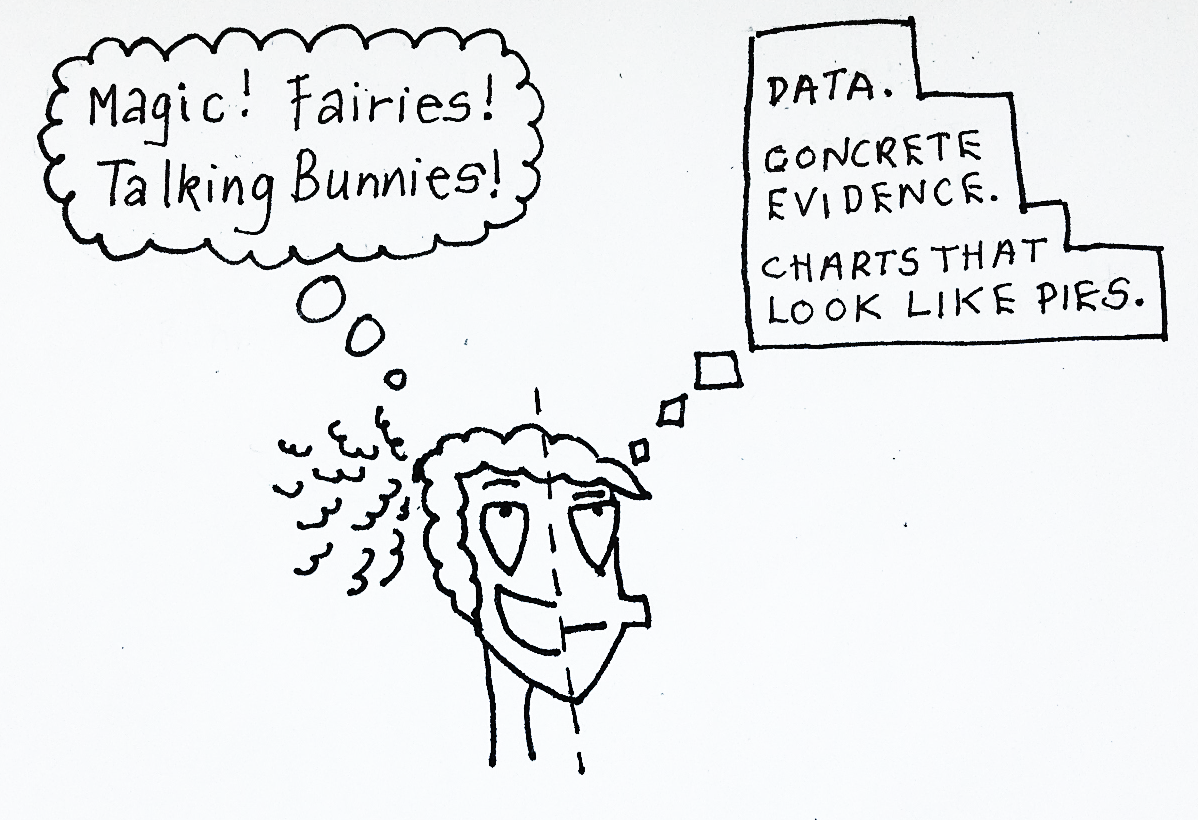 Magic! Fairies!
Talking Bunnies!
DATA.
CONCRETE
EVIDENCE.
CHARTS THAT
LOOK LIKE PIES.